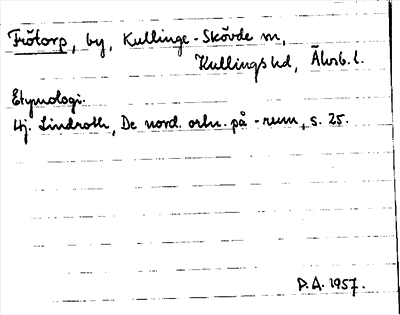 Frötorp, by, Kullinge-Skövde sn,
Kullings hd, Älvsb. l.
Etymologi.
Hj. Lindroth, De nord. ortn. på -rum, s. 25.
P.A. 1957.